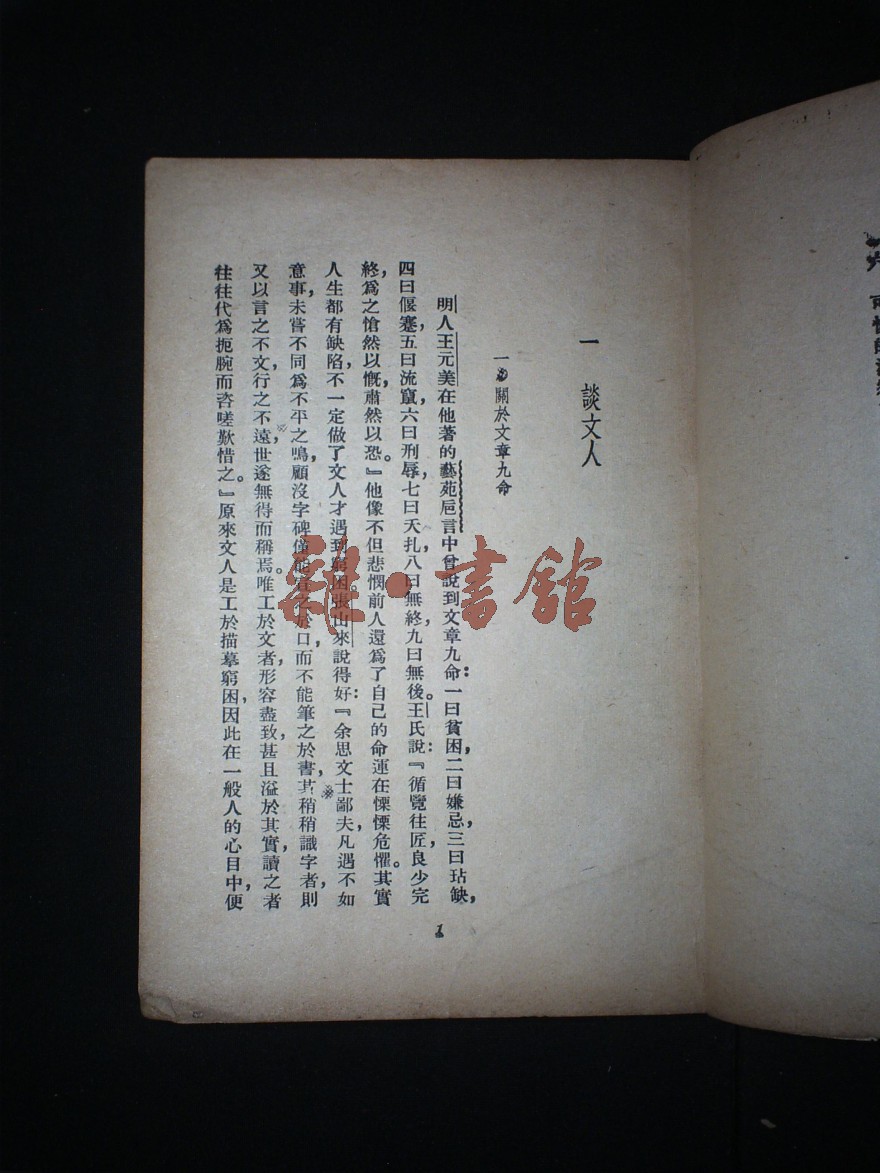 一　談文人
一　關於文章九命
明人王元美在他著的藝苑巵言中曾說到文章九命：一曰貧困，二曰嫌忌，三曰玷缺，
四曰偃蹇，五曰流竄，六曰刑辱，七曰夭扎，八曰無終，九曰無後。王氏說：『循覽往匠，良少完
終，爲之愴然以慨，肅然以恐。』他像不但悲憫前人，還爲了自己的命運在慄慄危懼。其實
人生都有缺陷，不一定做了文人才遇到窮困。張山來說得好：『余思文士鄙夫，凡遇不如
意事，未嘗不同爲不平之鳴，顧沒字碑僅能宣之於口，而不能筆之於書，其稍稍識字者，則
又以言之不文，行之不遠，世遂無得而稱焉。唯工於文者，形容盡致，甚且溢於其實，讀之者
往往代爲扼腕而咨嗟歎惜之。』原來文人是工於描摹窮困，因此在一般人的心目中，便
1
雜·書館